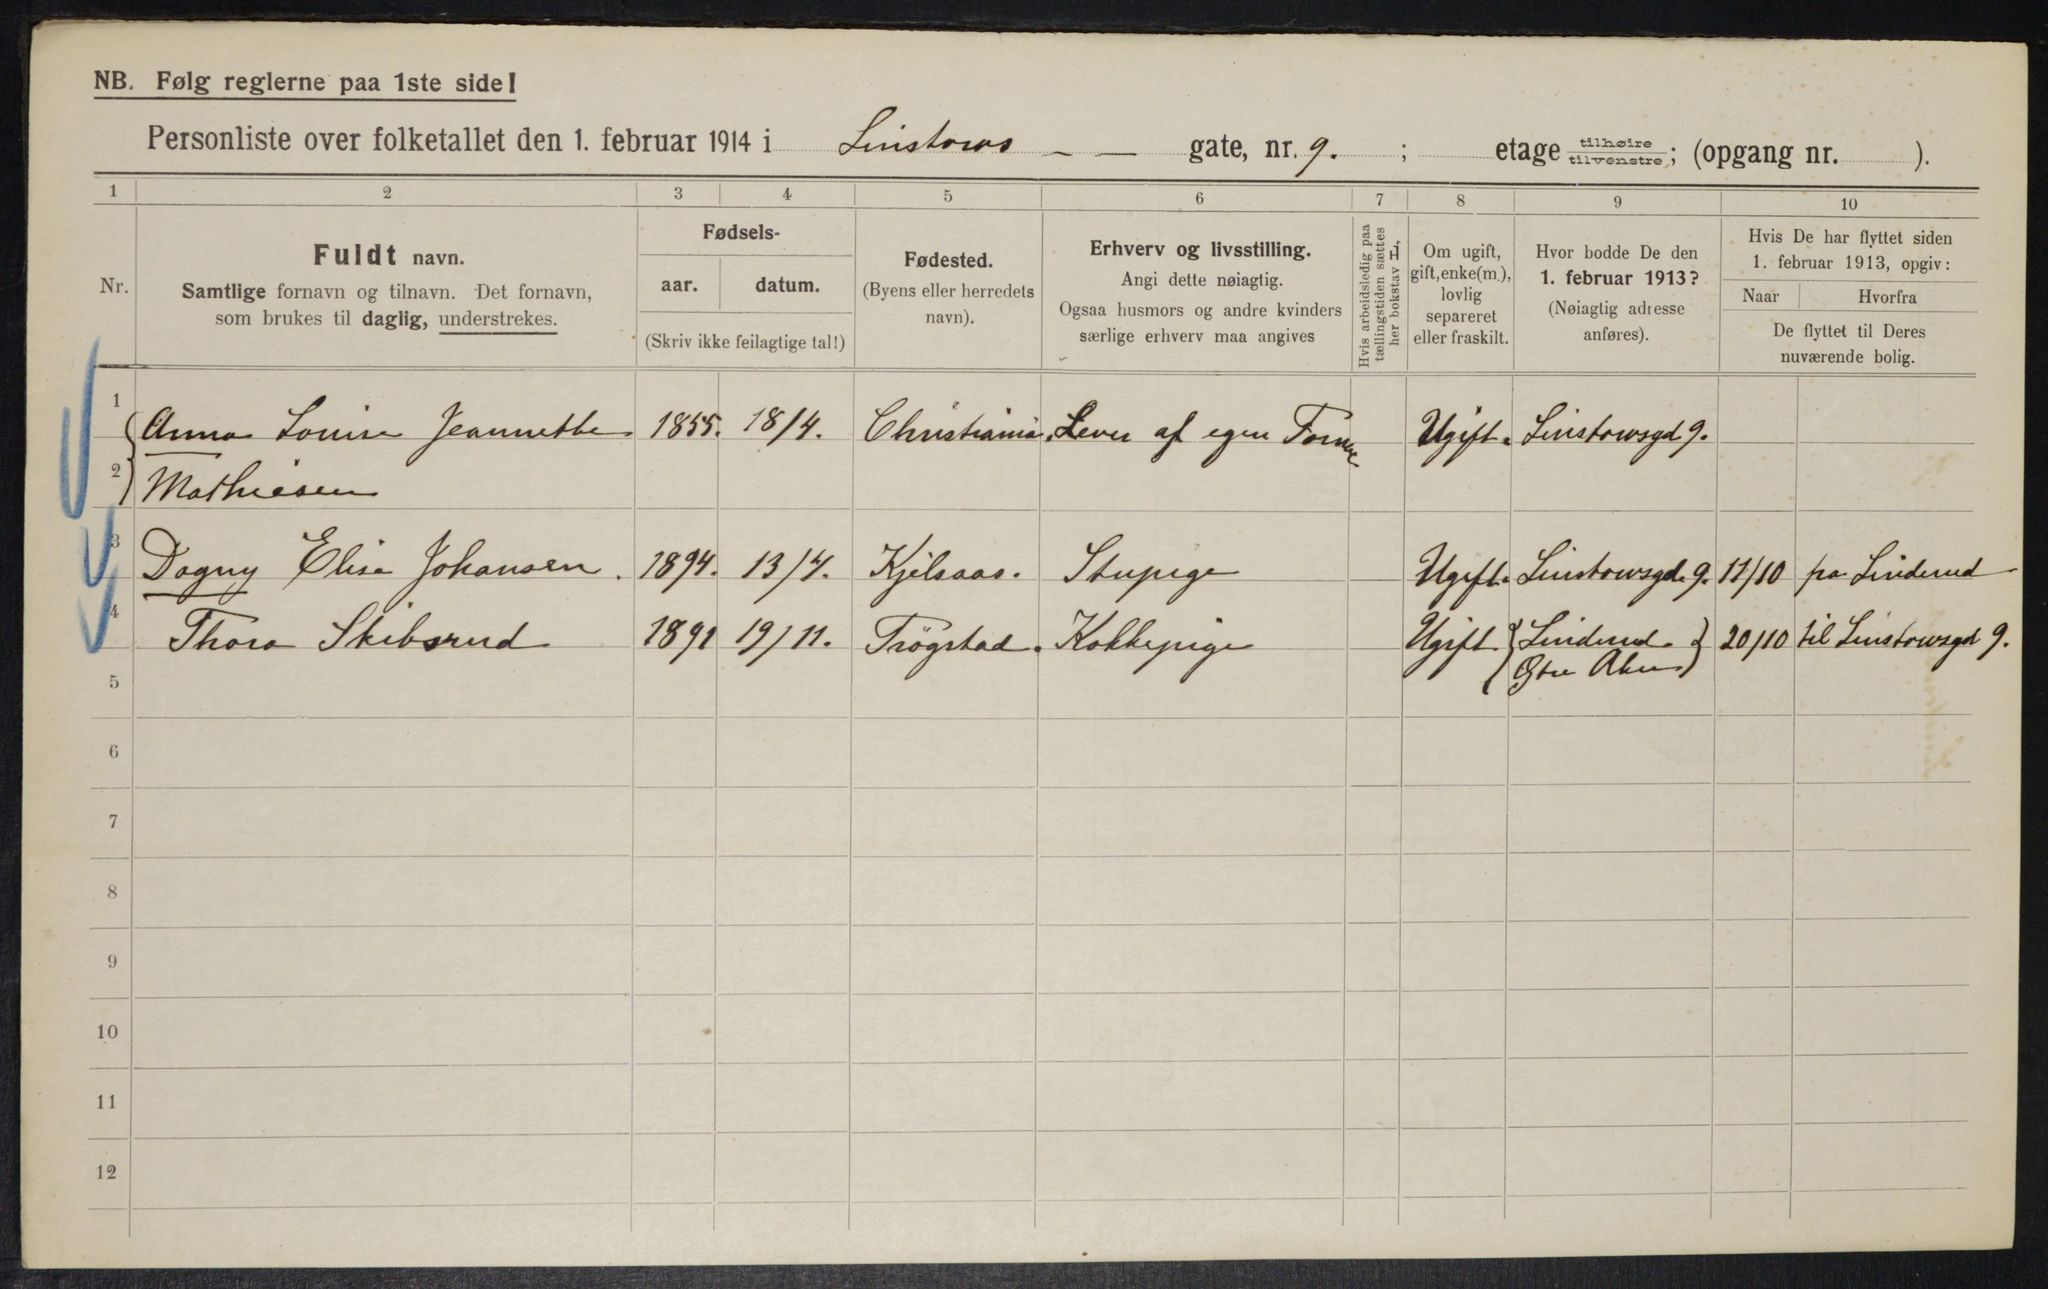 NB. Følg reglerne paa 1ste side!
Personliste over folketallet den 1. februar 1914 i Linstows — — gate, nr. 9. ; etage tilhøire tilvenstre; (opgang nr. ).
1 2 3 4 5 6 7 8 9 10
Nr.
Fuldt navn.
Samtlige fornavn og tilnavn. Det fornavn,
som brukes til daglig, understrekes.
Fødsels-
aar. datum.
(Skriv ikke feilagtige tal!)
Fødested.
(Byens eller herredets
navn).
Erhverv og livsstilling.
Angi dette nøiagtig.
Ogsaa husmors og andre kvinders
særlige erhverv maa angives
Hvis arbeidsledig paa
tællingstiden sættes
her bokstav L.
Om ugift,
gift, enke(m.),
lovlig
separeret
eller fraskilt.
Hvor bodde De den
1. februar 1913?
(Nøiagtig adresse
anføres).
Hvis De har flyttet siden
1. februar 1913, opgiv:
Naar Hvorfra
De flyttet til Deres
nuværende bolig.
1 Anna Louise Jeannette 1855. 18/4. Christiania. Lever af egen Ugift. Linstowsgd 9.
2 Mathiesen
3 Dagny Elise Johansen. 1894. 13/4. Kjelsaas. Stupige Ugift. Linstowsgd. 9. 11/10 fra Linderud
4 Thora Skibsrud 1891 19/11. Trögstad. Kokkepige Ugift { Linderud } 20/10 til Linstowsgd 9.
Østre Aker
5
6
7
8
9
10
11
12